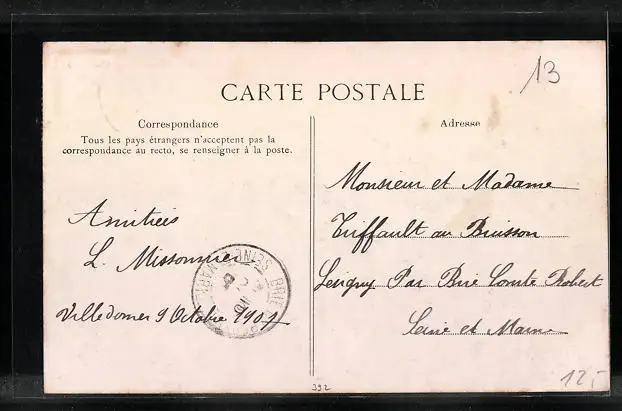 13
CARTE POSTALE
Correspondance
Tous les pays étrangers n'acceptent pas la
correspondance au recto, se renseigner à la poste.
Amitiés
L. Missonnier
Villedomer 9 Octobre
SEINE BRIE
Adresse
Monsieur et Madame
Triffault au Buisson
Lesigny Par Brie Comte Robert
Seine et Marne
392
12,-